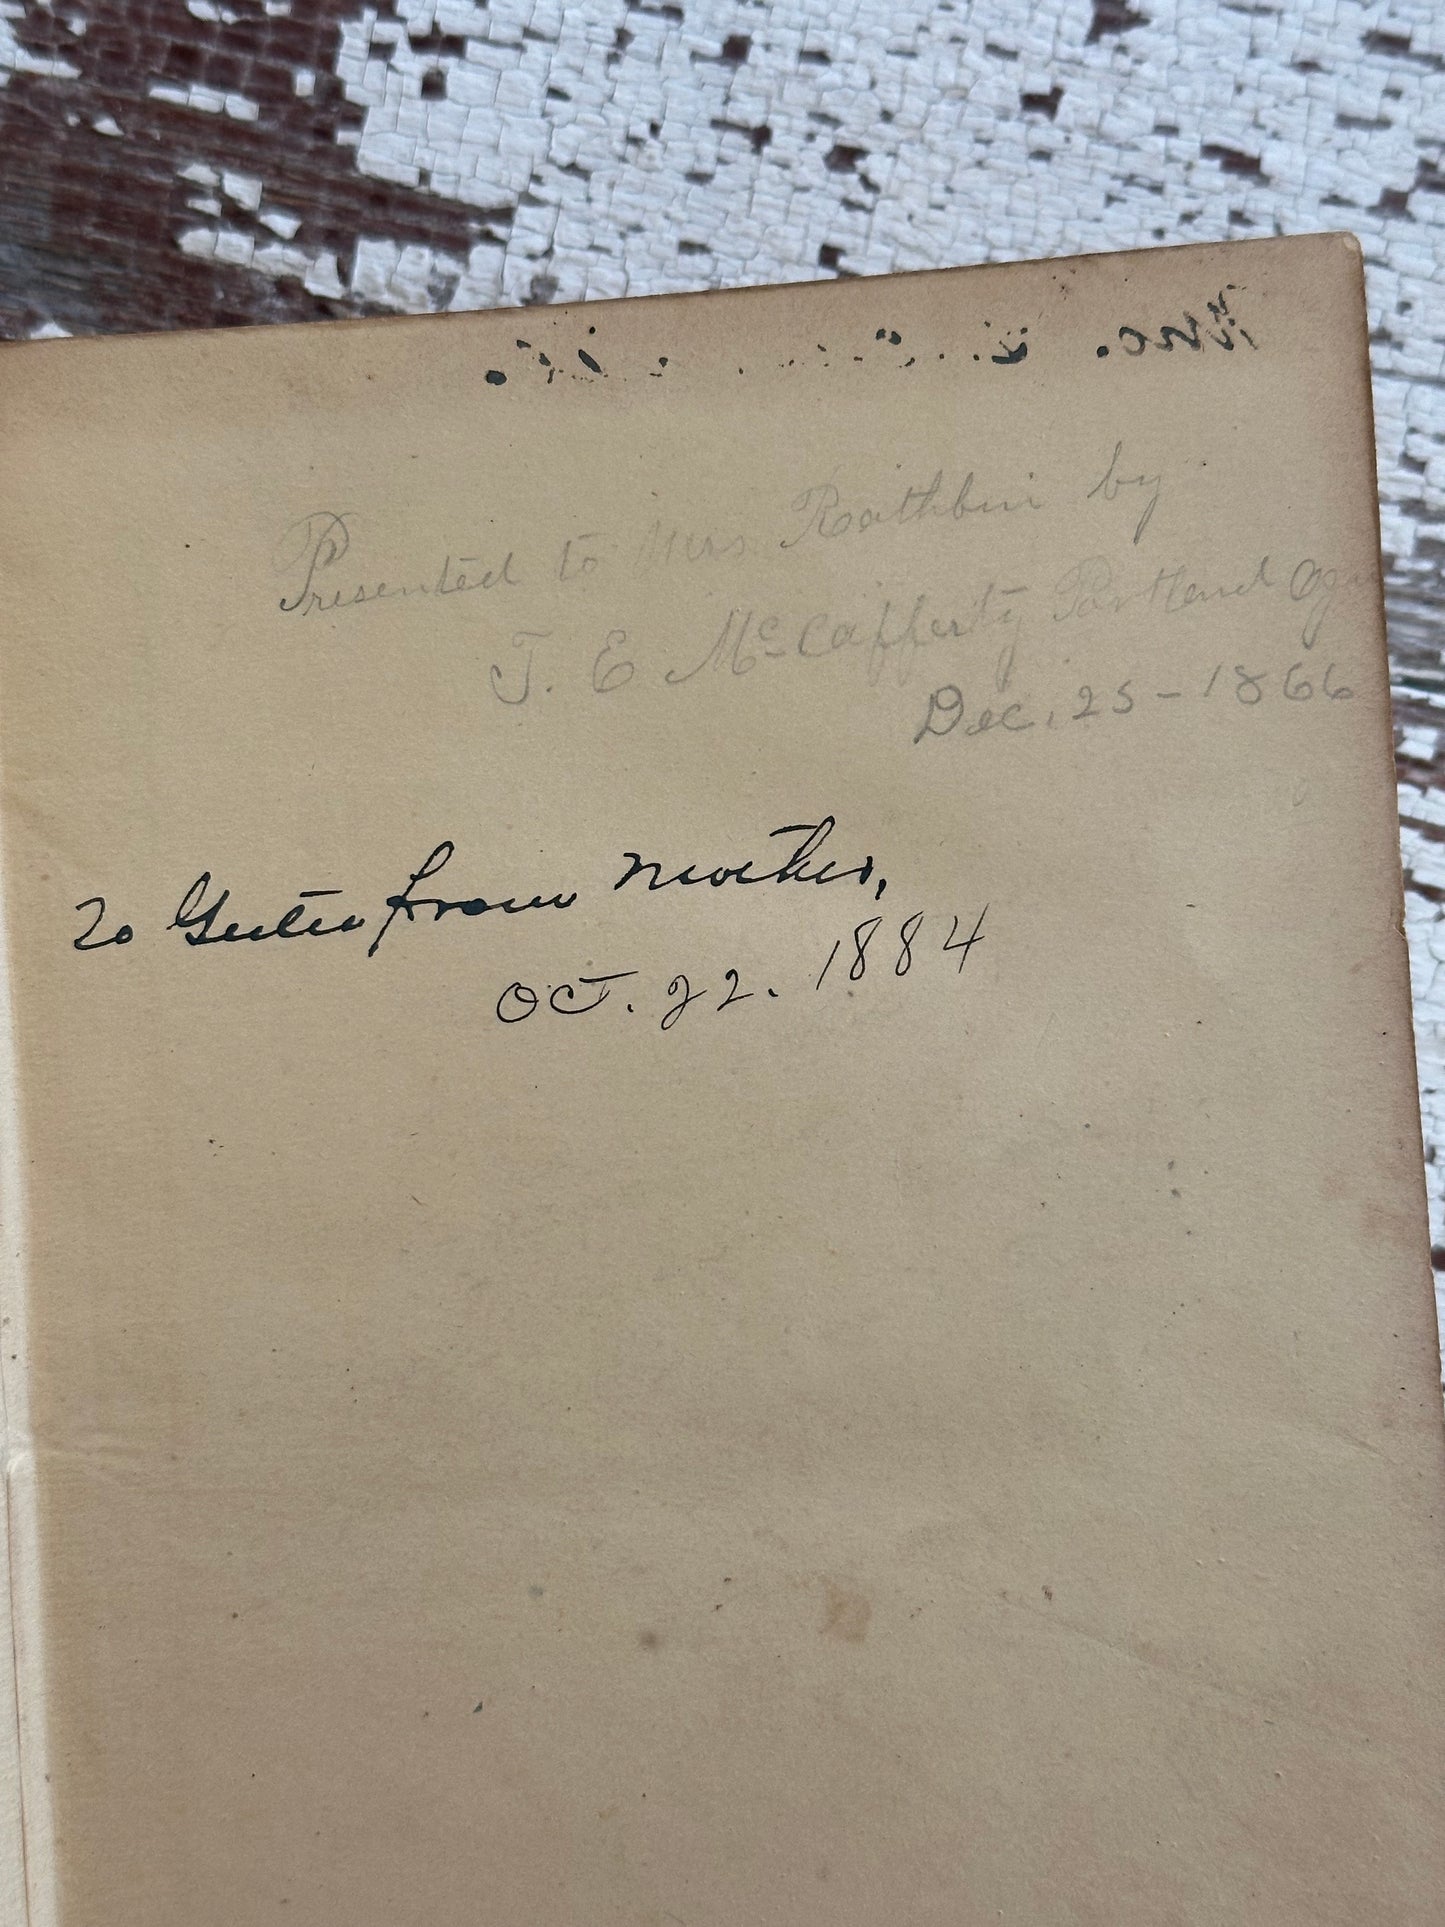 Presented to Mrs Rathbun by
J. E. McCafferty Portland Ogn
Dec. 25 - 1866
To from Mother,
OCT. 22. 1884